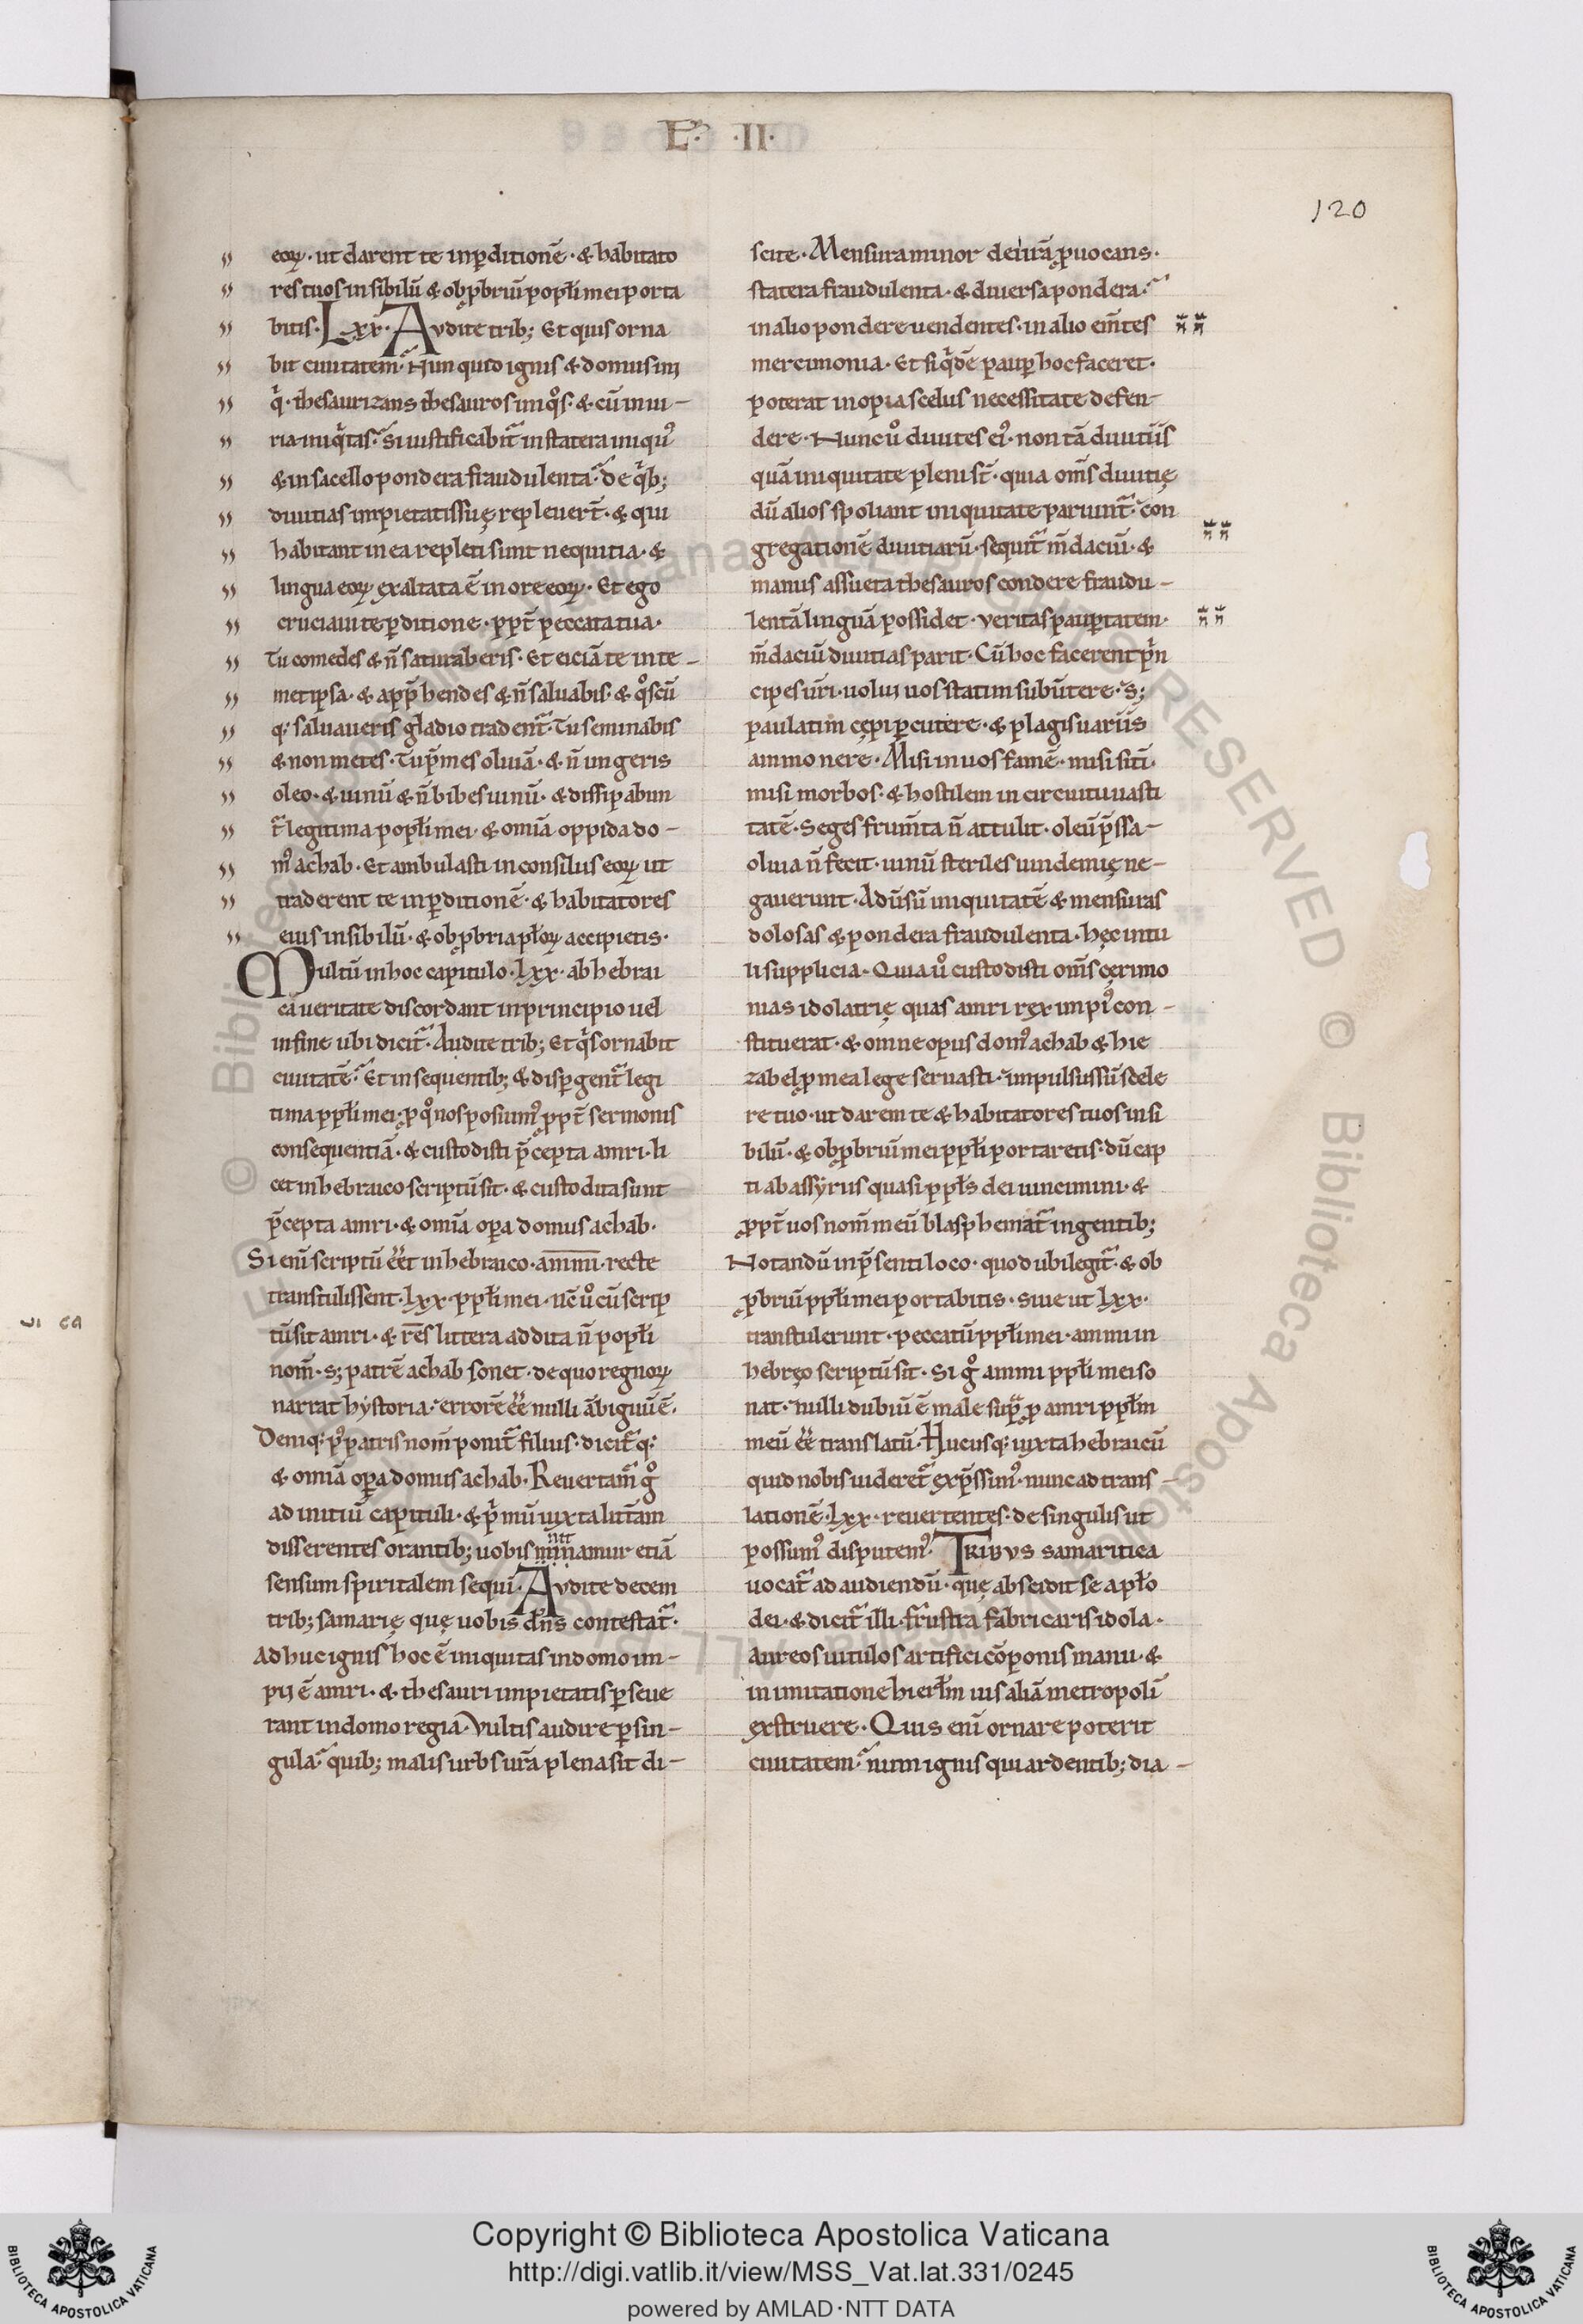 L · II ·
120
eoꝝ · ut darent te inp̱ditionē · & habitato
res tuos in sibilū & obp̱briū popl̃i mei porta
bitis · Lxx · Audite trib; Et quis orna
bit ciuitatem · Nunquid ignis & domus im
q̇ · thesaurizans thesauros iniqͦs · & cū iniu-
ria iniq̇tas · si iustificabit̃ in statera iniquꝰ
& in sacello pondera fraudulenta · de q̇b;
diuitias impietatis suę repleuer̃t · & qui
habitant in ea repleti sunt nequitia · &
lingua eoꝝ exaltata ē in ore eoꝝ · Et ego
cruciaui te p̱ditione · ꝓpt̃ peccata tua ·
Tu comedes & ñ saturaberis · Et eiciā te in te-
metipsa · & app̃hendes & ñ saluabis · & qͦscū
q: saluaueris gladio tradent̃ · Tu seminabis
& non metes · Tu p̃mes oliuā · & ñ ungeris
oleo · & uinū & ñ bibes uinū · & dissipabun
t̃ legitima popl̃i mei · & omīa oppida do-
mꝰ achab · Et ambulasti in consiliis eoꝝ ut
traderent te inp̱ditionē · & habitatores
eius in sibilū · & obꝓbria pl̃oꝝ accipietis ·
Multū in hoc capitulo · lxx · ab hebrai
ca ueritate discordant in principio uel
in fine ubi dicit̃ · Audite trib; Et q̇s ornabit
ciuitatē · Et in sequentib; & disp̱gent̃ legi
tima ppl̃i mei · ꝓ qͦ nos posuimꝰ ꝓpt̃ sermonis
consequentiā · & custodisti p̃cepta amri · li
cet in hebraico scriptū sit · & custodita sunt
p̃cepta amri · & omīa oꝑa domus achab ·
Si enī scriptū eēt in hebraico · ammi · recte
transtulissent · lxx · ppl̃i mei · nc̄ u̇ cū scrip
tū sit amri · & rēs littera addita ñ popl̃i
nom̃ · s; patrē achab sonet · de quo regnoꝝ
narrat hẏstoria · errorē eē nulli ābiguū ē ·
Deniq: pꝰ patris nom̃ ponit̃ filius · dicit̃q:
& omīa oꝑa domus achab · Reuertam̃ gͦ
ad initiū capituli · & p̃mū iuxta litt̃am
disserentes orantib; uobis nitamur etiā
sensum spiritalem sequi · Audite decem
trib; samarię quę uobis dñs contestat̃ ·
Adhuc ignis hoc ē iniquitas in domo im-
pij ē amri · & thesauri impietatis ꝑseue
rant in domo regia · Vultis audire ꝑ sin-
gula · quib; malis urbs ur̃a plena sit di-
scite · Mensura minor dei irā ꝓuocans ·
statera fraudulenta · & diuersa pondera ·
in alio pondere uendentes · in alio em̃tes
mercimonia · Et si q̇dē paup̱ hoc faceret ·
poterat inopia scelus necessitate defen-
dere · Nunc u̇ diuites eiꝰ · non tā diuitiis
quā iniquitate pleni st̃ · quia om̃s diuitię
dū alios spoliant iniquitate pariunt̃ · con
gregationē diuitiarū · sequit̃ m̃daciū · &
manus assueta thesauros condere fraudu-
lentā linguā possidet · veritas paup̱tatem ·
m̃daciū diuitias parit · Cū hoc facerent p̃n
cipes ur̃i · uolui uos statim subūtere · S;
paulatim cępi ꝑcutere · & plagis uariis
ammonere · Misi in uos famē · misi sitī ·
misi morbos · & hostilem in circuitu uasti
tatē · Seges frum̃ta ñ attulit · oleū p̃ssa-
oliua ñ fecit · uinū steriles uindemię ne-
gauerunt · Aduersū iniquitatē & mensuras
dolosas & pondera fraudulenta · hęc intu
li supplicia · Quia u̇ custodisti om̃s cerimo
nias idolatrię quas amri rex impiꝰ con-
stituerat · & omne opus domꝰ achab & hie
zabel ꝓ mea lege seruasti · impulsus sū scele
re tuo · ut darem te & habitatores tuos in si
bilū · & obꝓbriū mei ppl̃i portaretis · dū cap
ti ab assẏriis quasi ppl̃s dei uincimini · &
ꝓpt̃ uos nom̃ meū blasphemat̃ in gentib;
Notandū in p̃senti loco · quod ubi legit̃ · & ob
ꝓbriū ppl̃i mei portabitis · siue ut lxx ·
transtulerunt · peccatū ppl̃i mei · ammi in
hebręo scriptū sit · Si gͦ ammi ppl̃i mei so
nat · nulli dubiū ē male sup̃ ꝓ amri ppl̃m
meū eē translatū · Hucusq: iuxta hebraicū
quid nobis uideret̃ exp̃ssimꝰ · nunc ad trans-
lationē · lxx · reuertentes · de singulis ut
possumꝰ disputemꝰ · TRIBVS samaritica
uocat̃ ad audiendū · quę abscidit se a pl̃o
dei · & dicit̃ illi · frustra fabricaris idola ·
aureos uitulos artifici cōponis manu · &
in imitatione hierl̃m uis aliā metropolī
exstruere · Quis enī ornare poterit
ciuitatem · num ignis qui ardentib; dia-
Copyright © Biblioteca Apostolica Vaticana
http://digi.vatlib.it/view/MSS_Vat.lat.331/0245
powered by AMLAD·NTT DATA
BIBLIOTECA APOSTOLICA VATICANA
BIBLIOTECA APOSTOLICA VATICANA